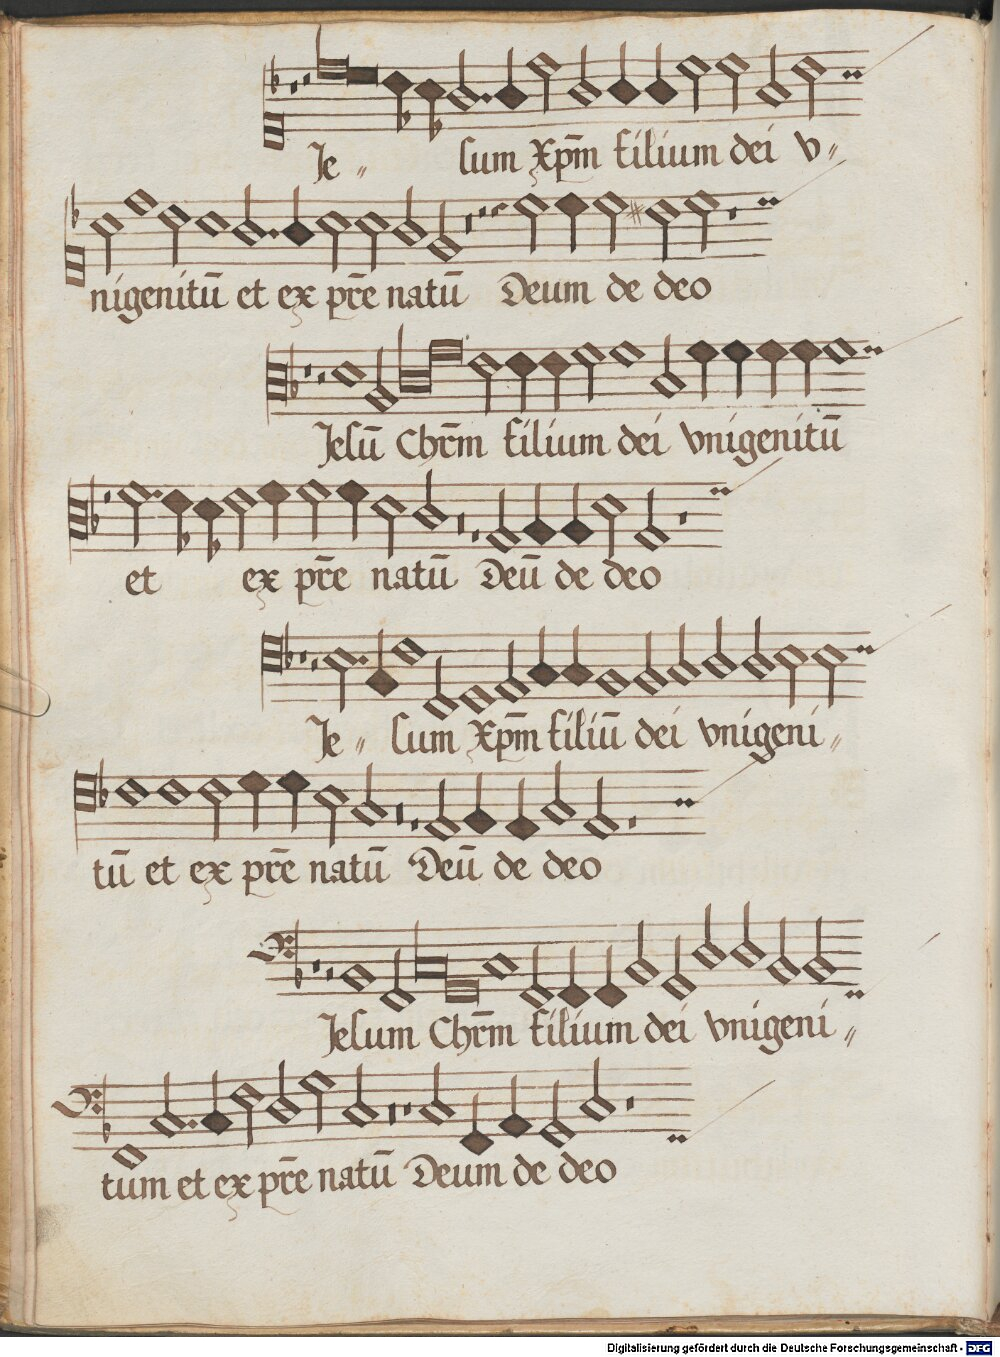 Je〃 sum Xp̄m filium dei v〃
nigenitū et ex pr̄e natū Deum de deo
Jesū Chr̄m filium dei vnigenitū
et ex pr̄e natū Deū de deo
Je〃 sum Xp̄m filiū dei vnigeni〃
tū et ex pr̄e natū Deū de deo
Jesum Chr̄m filium dei vnigeni〃
tum et ex pr̄e natū Deum de deo
Digitalisierung gefördert durch die Deutsche Forschungsgemeinschaft - DFG